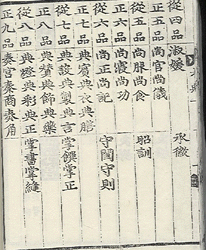 從四品 淑媛 承徽
正五品 尚宮尚儀
從五品 尚服尚食 昭訓
正六品 尚寢尚功
從六品 尚正尚記 守閨守則
正七品 典賓典衣典膳
從七品 典設典製典言 掌饌掌正
正八品 典贊典飾典藥
從八品 典燈典彩典正 掌書掌縫
正九品 奏宮奏商奏角